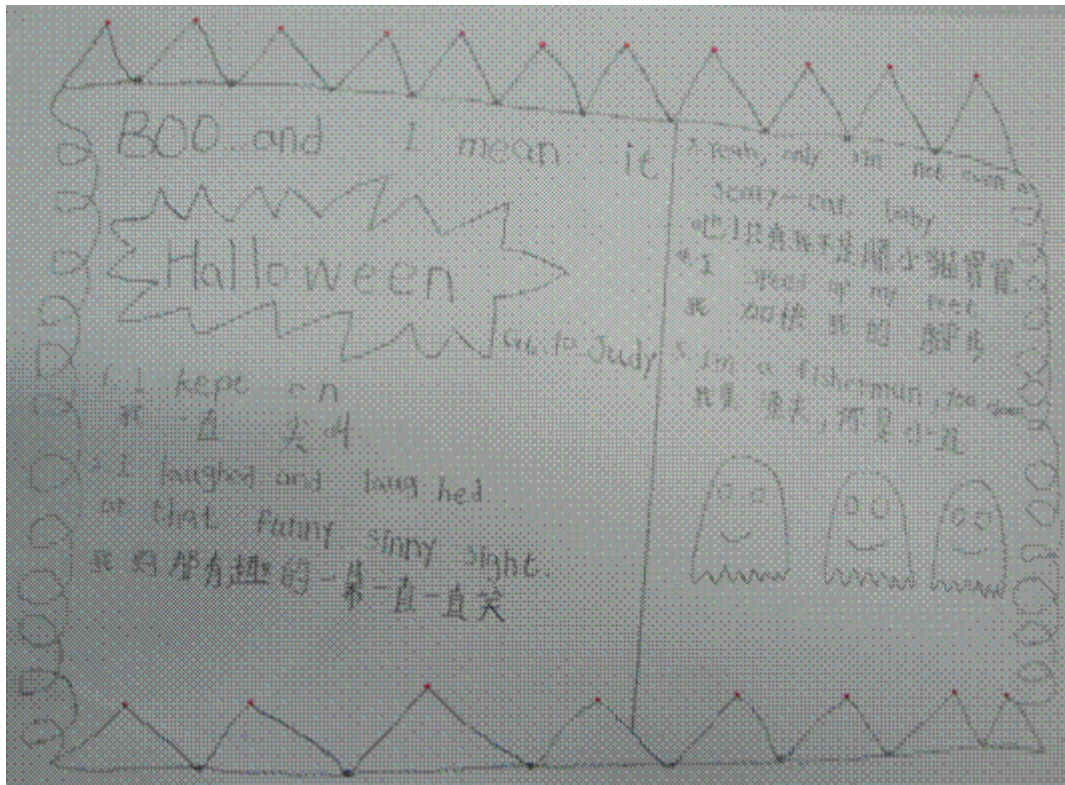 BOO and I mean it
Halloween
to Judy
1. I kept on
我 一直 尖叫
2. I laughed and laughed
at that funny sippy sight.
我 的 那有趣的一幕一直一直笑
3. Yeah, only I'm not even a
scary-cat, baby
吧!只有我不是 小 猫
4. I speed up my feet
我 加快 我 的 脚步
5. I'm a fisherman, too
我是 渔夫,不是